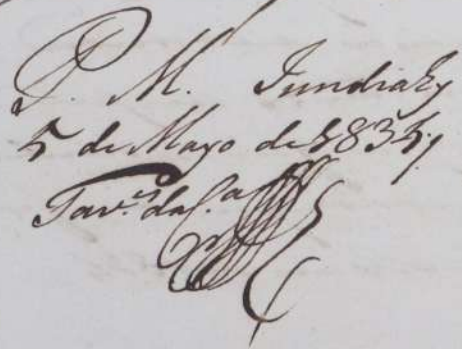 P. M. Jundiahy
5 de Mayo de 1835
Tav.es da C.a